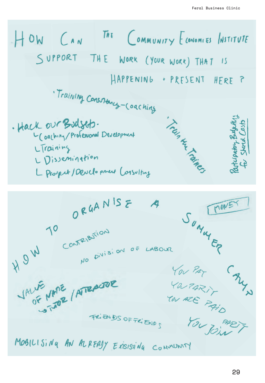 Feral Business Clinic
HOW CAN THE COMMUNITY ECONOMIES INSTITUTE
SUPPORT THE WORK (YOUR WORK) THAT IS
HAPPENING + PRESENT HERE ?
• Training Consultancy - coaching
• Hack our Budgets.
↳ Coaching / Professional Development
↳ Training
↳ Dissemination
↳ Project / Development Consulting
• Train the Trainers
Participatory Budgets
for Shared Costs
HOW TO ORGANISE A SUMMER CAMP?
MONEY
CONTRIBUTION
NO DIVISION OF LABOUR
VALUE
OF NAME
→ TUTOR / ATTRACTOR
FRIENDS OF FRIENDS
YOU PAY
YOU ARE PAID
YOU JOIN
MOBILISING AN ALREADY EXISTING COMMUNITY
29